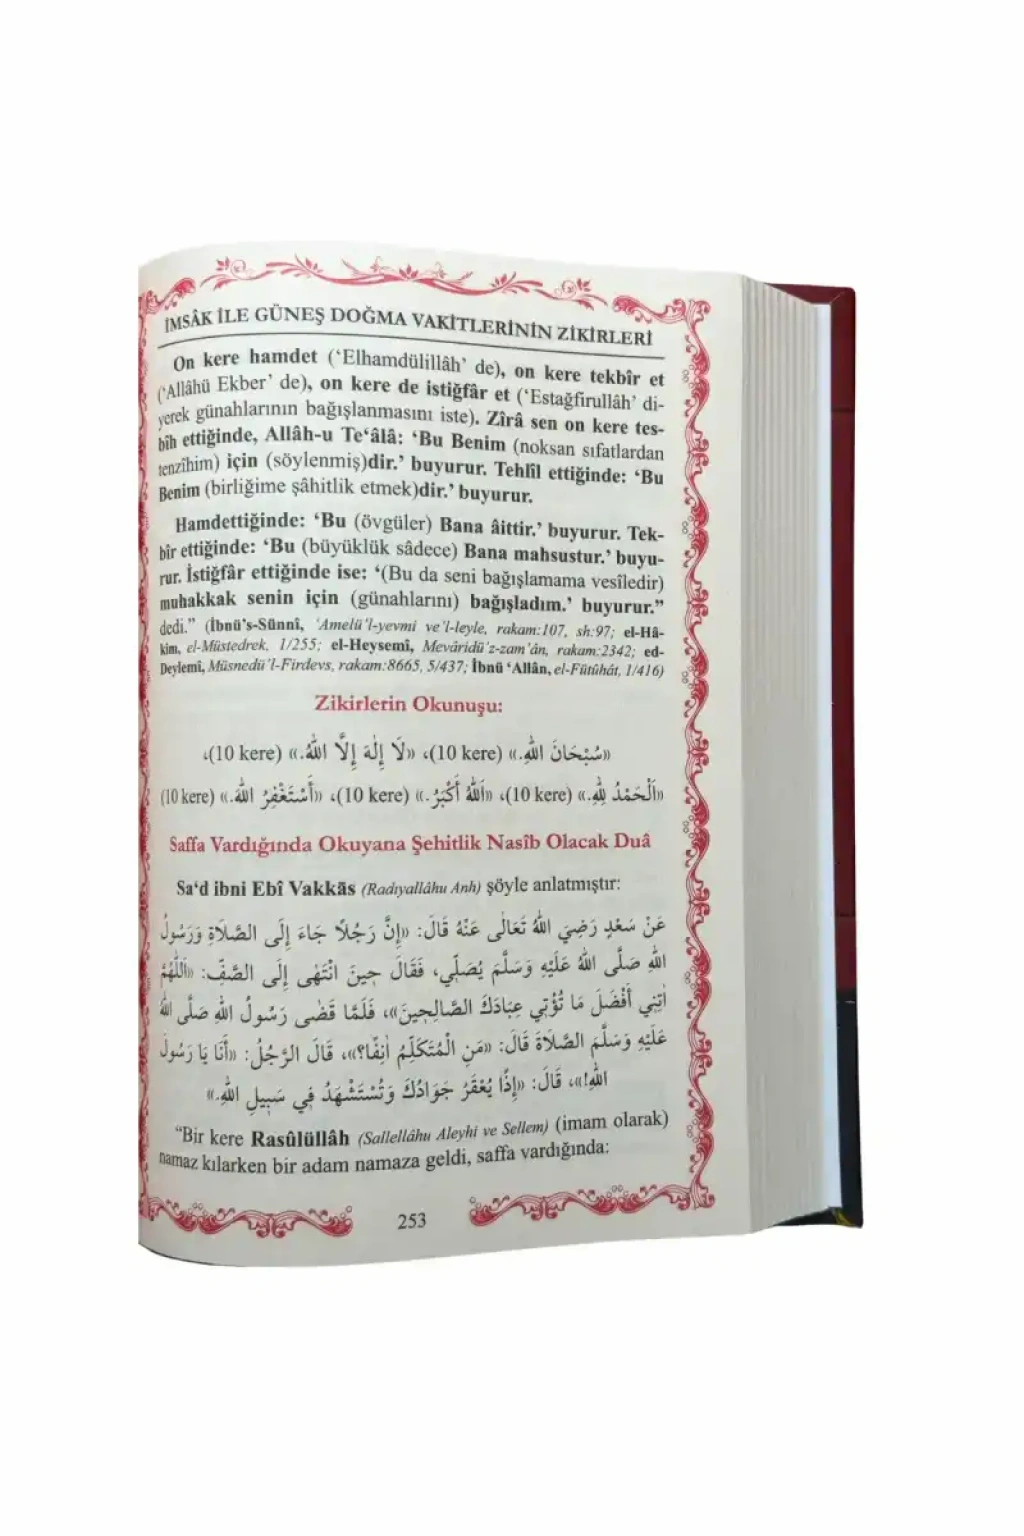 İMSÂK İLE GÜNEŞ DOĞMA VAKİTLERİNİN ZİKİRLERİ
On kere hamdet (‘Elhamdülillâh’ de), on kere tekbîr et
(‘Allâhü Ekber’ de), on kere de istiğfâr et (‘Estağfirullâh’ di-
yerek günahlarının bağışlanmasını iste). Zîrâ sen on kere tes-
bîh ettiğinde, Allâh-u Te‘âlâ: ‘Bu Benim (noksan sıfatlardan
tenzîhim) için (söylenmiş)dir.’ buyurur. Tehlîl ettiğinde: ‘Bu
Benim (birliğime şâhitlik etmek)dir.’ buyurur.
Hamdettiğinde: ‘Bu (övgüler) Bana âittir.’ buyurur. Tek-
bîr ettiğinde: ‘Bu (büyüklük sâdece) Bana mahsustur.’ buyu-
rur. İstiğfâr ettiğinde ise: ‘(Bu da seni bağışlamama vesîledir)
muhakkak senin için (günahlarını) bağışladım.’ buyurur.”
dedi.” (İbnü’s-Sünnî, ‘Amelü’l-yevmi ve’l-leyle, rakam:107, sh:97; el-Hâ-
kim, el-Müstedrek, 1/255; el-Heysemî, Mevâridü’z-zam’ân, rakam:2342; ed-
Deylemî, Müsnedü’l-Firdevs, rakam:8665, 5/437; İbnü ‘Allân, el-Fütûhât, 1/416)
Zikirlerin Okunuşu:
«سُبْحَانَ اللّٰهِ.» (10 kere)، «لَا إِلٰهَ إِلَّا اللّٰهُ.» (10 kere)،
«اَلْحَمْدُ لِلّٰهِ.» (10 kere)، «اَللّٰهُ أَكْبَرُ.» (10 kere)، «أَسْتَغْفِرُ اللّٰهَ.» (10 kere)
Saffa Vardığında Okuyana Şehitlik Nasîb Olacak Duâ
Sa‘d ibni Ebî Vakkâs (Radıyallâhu Anh) şöyle anlatmıştır:
عَنْ سَعْدٍ رَضِيَ اللّٰهُ تَعَالٰى عَنْهُ قَالَ: «إِنَّ رَجُلًا جَاءَ إِلَى الصَّلَاةِ وَرَسُولُ
اللّٰهِ صَلَّى اللّٰهُ عَلَيْهِ وَسَلَّمَ يُصَلِّي، فَقَالَ حِينَ انْتَهٰى إِلَى الصَّفِّ: «اَللّٰهُمَّ
اٰتِنِي أَفْضَلَ مَا تُؤْتِي عِبَادَكَ الصَّالِحِينَ»، فَلَمَّا قَضٰى رَسُولُ اللّٰهِ صَلَّى اللّٰهُ
عَلَيْهِ وَسَلَّمَ الصَّلَاةَ قَالَ: «مَنِ الْمُتَكَلِّمُ اٰنِفًا؟»، قَالَ الرَّجُلُ: «أَنَا يَا رَسُولَ
اللّٰهِ!»، قَالَ: «إِذًا يُعْقَرُ جَوَادُكَ وَتُسْتَشْهَدُ فِي سَبِيلِ اللّٰهِ.»
“Bir kere Rasûlüllâh (Sallellâhu Aleyhi ve Sellem) (imam olarak)
namaz kılarken bir adam namaza geldi, saffa vardığında:
253